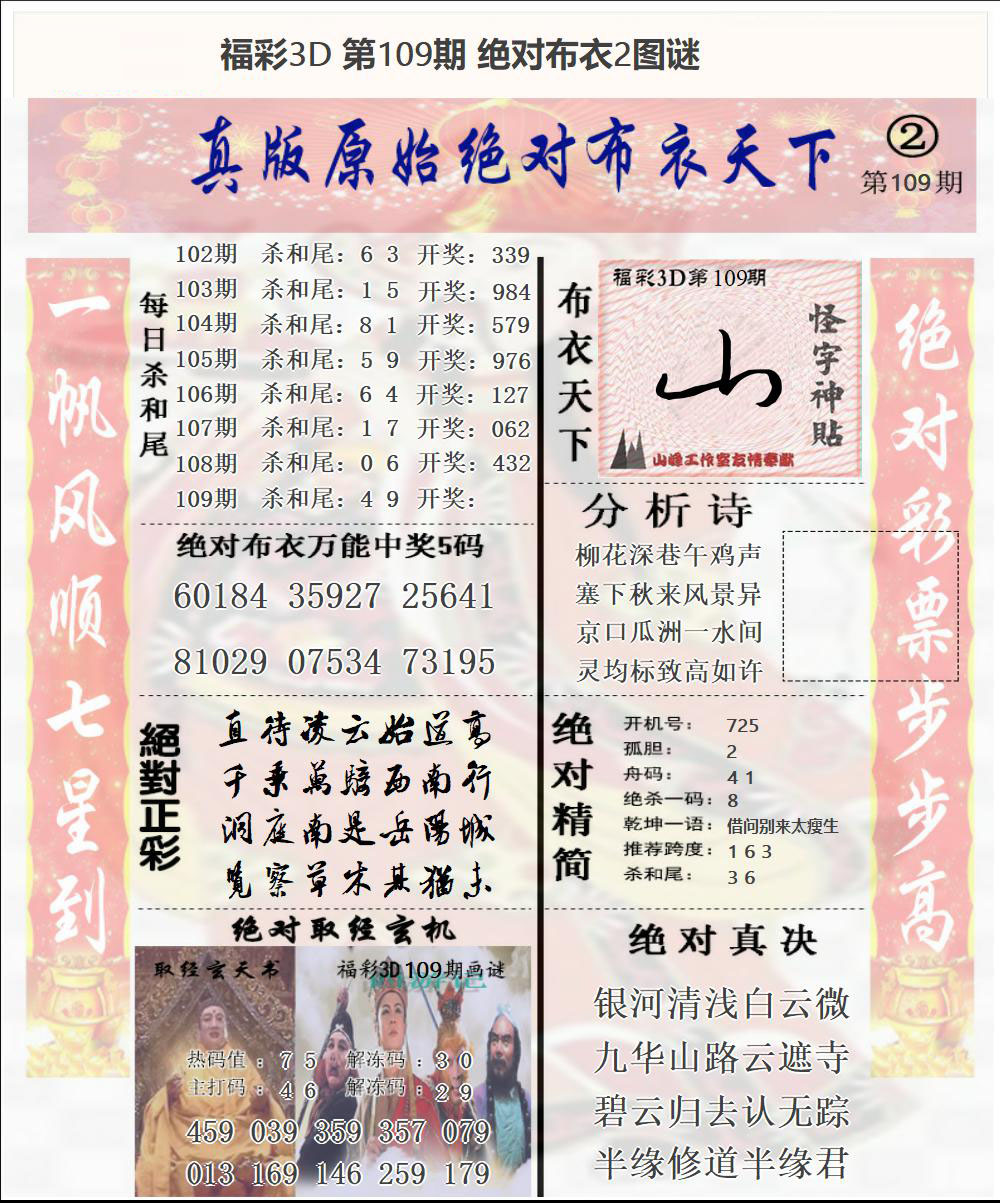 福彩3D 第109期 绝对布衣2图谜
真版原始绝对布衣天下
②
第109期
一帆风顺七星到
每日杀和尾
102期 杀和尾：6 3 开奖：339
103期 杀和尾：1 5 开奖：984
104期 杀和尾：8 1 开奖：579
105期 杀和尾：5 9 开奖：976
106期 杀和尾：6 4 开奖：127
107期 杀和尾：1 7 开奖：062
108期 杀和尾：0 6 开奖：432
109期 杀和尾：4 9 开奖：
绝对布衣万能中奖5码
60184 35927 25641
81029 07534 73195
絕對正彩
直待凌云始道高
千乘萬騎西南行
洞庭南是岳陽城
覽察草木其猶未
绝对取经玄机
取经玄天书
福彩3D109期画谜
热码值：7 5 解冻码：3 0
主打码：4 6 解冻码：2 9
459 039 359 357 079
013 169 146 259 179
布衣天下
福彩3D第109期
山
怪字神貼
山峰工作室友情奉献
分析诗
柳花深巷午鸡声
塞下秋来风景异
京口瓜洲一水间
灵均标致高如许
绝对精简
开机号：725
孤胆：2
舟码：4 1
绝杀一码：8
乾坤一语：借问别来太瘦生
推荐跨度：1 6 3
杀和尾：3 6
绝对真决
银河清浅白云微
九华山路云遮寺
碧云归去认无踪
半缘修道半缘君
绝对彩票步步高